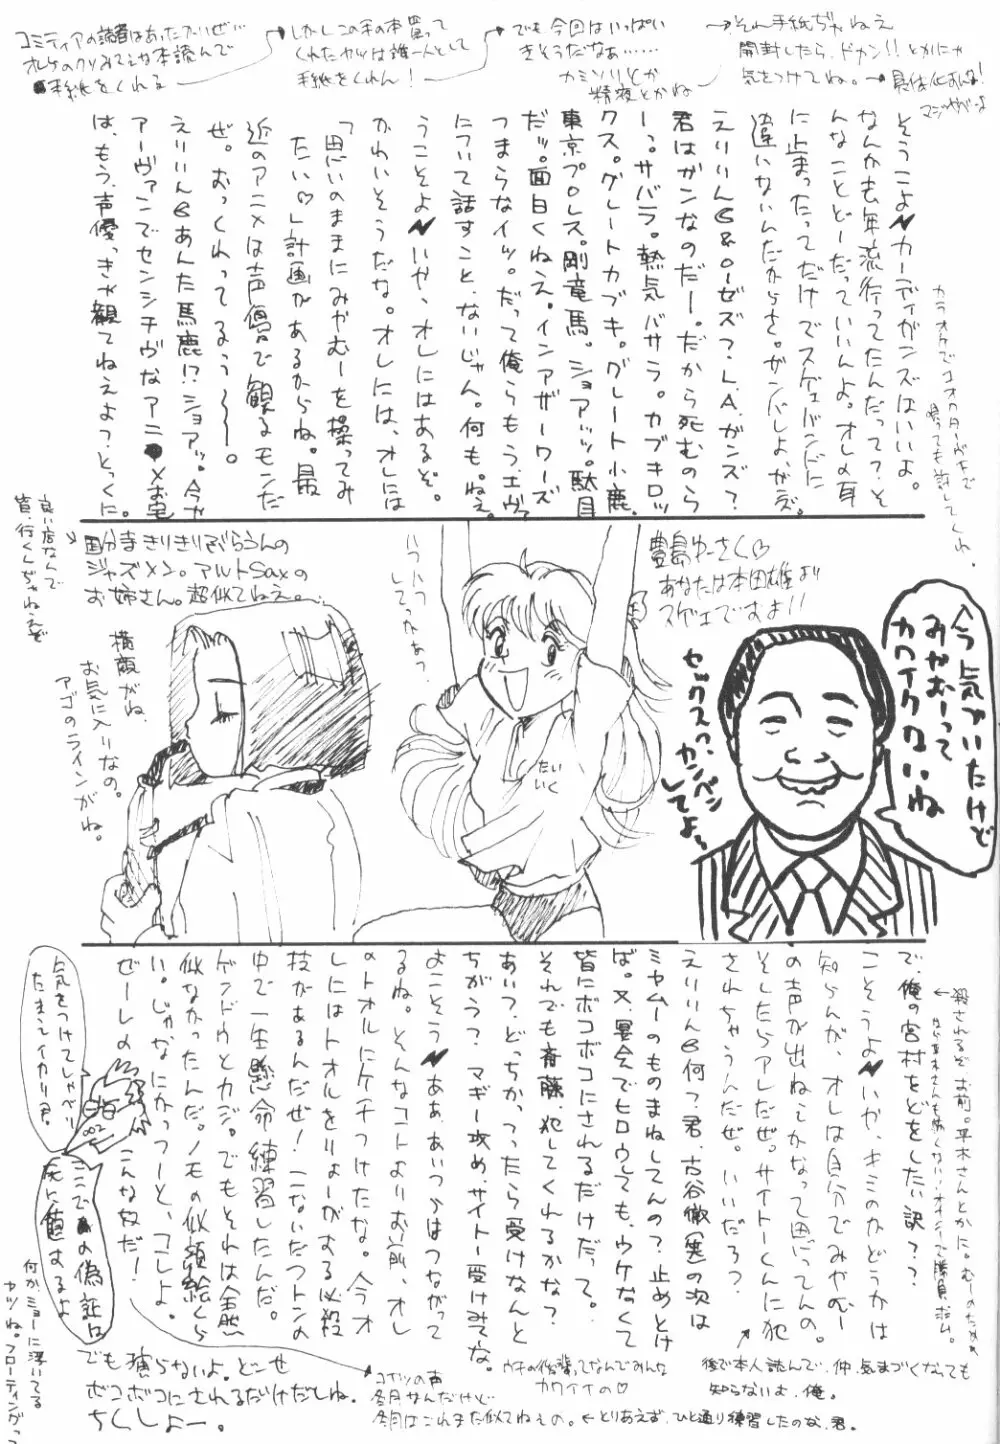 コミティアの読者はあったかいぜ…
オレのクソみてェな本読んで
手紙をくれる
しかしこの手の本買って
くれたヤツは誰一人として
手紙をくれん！
でも今回はいっぱい
きそうだなぁ……
カミソリとか
精液とかね
それ手紙ぢゃねえ
開封したら、ドカン!!とかにゃ
気をつけてね。
そうこよカーディガンズはいいよ。
なんか去年流行ってたんだって？そ
んなことどーだっていいんよ。オレの耳
に止まったってだけでスゲェバンドに
違いないんだからさ。ザンバしよ、がズ。
えりりん6&ローゼズ？L.A.ガンズ？
君はガンなのだー。だから死むのら
ーっ。サバラ。熱気バサラ。カブキロッ
クス。グレートカブキ。グレート小鹿。
東京プロレス。剛竜馬。ショアッッ。駄目
だッ。面白くねえ。インアザーワーズ
つまらなイッ。だって俺らもう、エヴァ
について話すこと、ないじゃん。何も。ねぇ。
うこそよいや、オレにはあるぞ。
かわいそうだな。オレには、オレには
「思いのままにみやむーを操ってみ
たい♡」計画があるからね。最
近のアニメは声優で観るモンだ
ぜ。おっくれってるぅ〜〜。
えりりん6あんた馬鹿!?ショアッ。今や
アーヴァンでセンシチヴなアニメお宅
は、もう、声優っきゃ観てねえよっとっくに。
カラオケでコオロギーがちで
唄っても許してくれ。
良い店なんで
皆、行くんぢゃねえぞ
国分寺きりきりぶらうんの
ジャズメン。アルトSaxの
お姉さん。超似てねえ。
横顔がね、
お気に入りなの。
アゴのラインがね。
ハフハフ
してっかあっ
たいいく
豊島ゆーさく♡
あなたは本田雄より
スゲェですよ!!
セックスワ、カンベンしてよぅ
今気づいたけど
みやむーって
カワイクないね
で、俺の宮村をどをしたい訳？？
こそうよいや、キミのかどうかは
知らんが、オレは自分でみやむー
の声が出ねーしかなって思ってんの。
そしたらアレだぜ。サイトーくんに犯
されちゃうんだぜ。いいだろ？
えりりん6何？君、古谷徹(笑)の次は
ミヤムーのものまねしてんの？止めとけ
ば。又、宴会でヒロウしても、ウケなくて
皆にボコボコにされるだけだって。
それでも斉藤、犯してくれるかな？
あいつ、どっちかつったら受けなんと
ちがう？マギー攻め、サイトー受けみてな。
よこそうああ、あいつらはつながって
るね。そんなコトよりお前、オレ
のトオルにケチつけたな。今オ
しにはトオルをりょーがする必殺
技があるんだぜ！二ないだットンの
中で一生懸命練習したんだ。
ゲンドウとカジ。でもそれは全然
似なかったんだ。ノモの似顔絵くら
い。じゃなにかっつーと、コレよ。
ぜーレのこんな奴だ！
気をつけてしゃべり
たまえイカリ君。
ここでの偽証は
死に値するよ
何か、ミョーに浮いてる
ヤツね。フローティングっつ
でも猿らないよ。どーせ
ボコボコにされるだけだしね。
ちくしょー。
コイツの声
各月サんだけど
各自はこれまた似てねえの。←とりあえず、ひと通り練習したのな、君。
ウチの後輩ってなんでみんな
カワイイの♡
後で本人読んで、仲、気まづくなっても
知らないよ、俺。
殺されるぞ、お前。平木さんとかに。むーのため